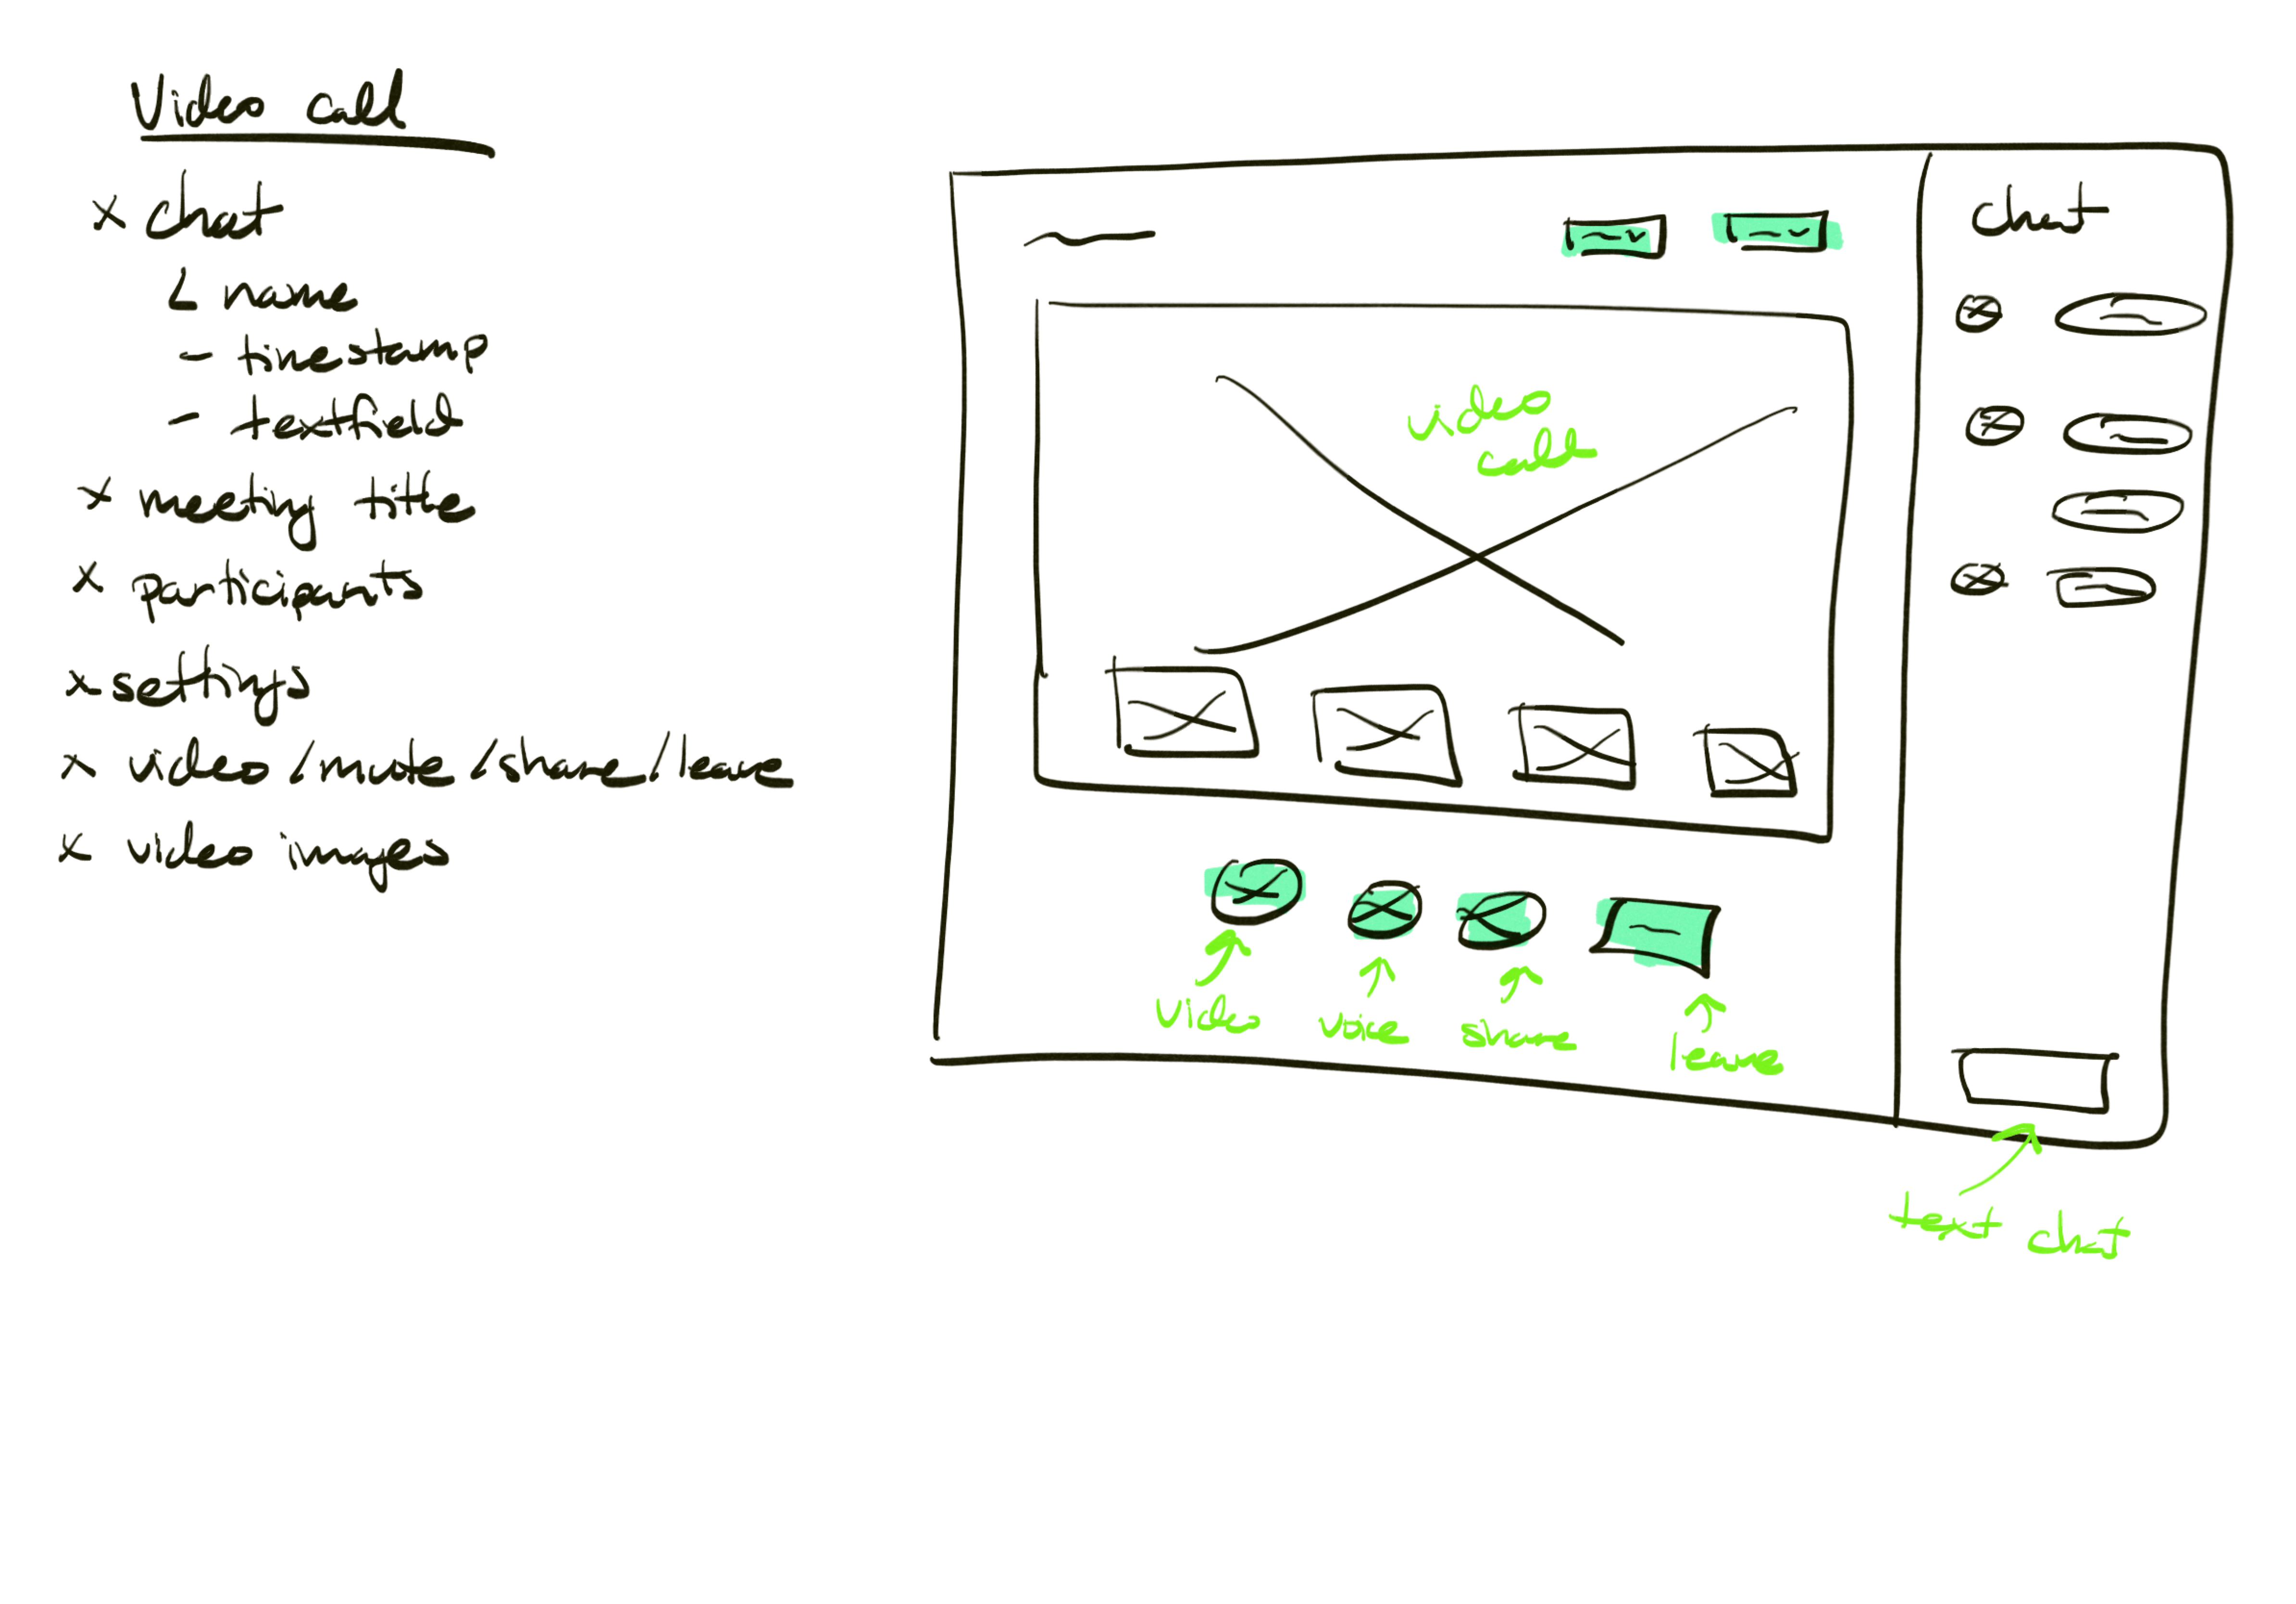 Video call
x chat
L name
- timestamp
- textfield
x meeting title
x participants
x settings
x video/mute/share/leave
x video images
chat
video
call
video
voice
share
leave
text chat